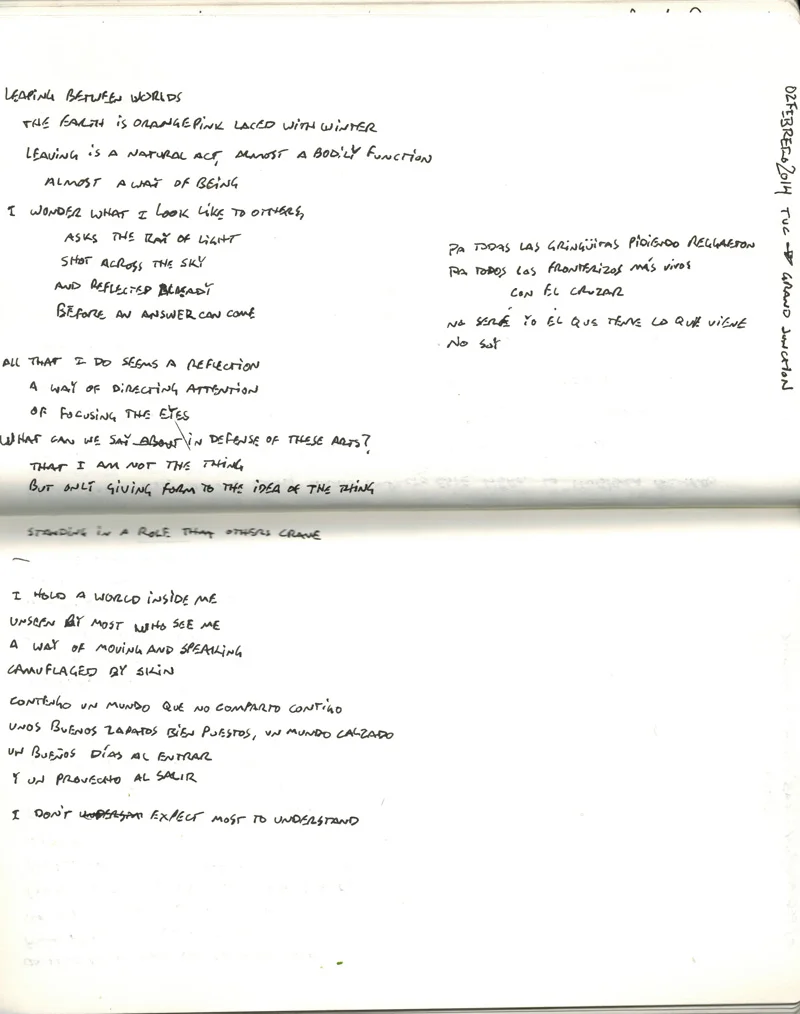 LEAPING BETWEEN WORLDS
THE EARTH IS ORANGEPINK LACED WITH WINTER
LEAVING IS A NATURAL ACT, ALMOST A BODILY FUNCTION
ALMOST A WAY OF BEING
I WONDER WHAT I LOOK LIKE TO OTHERS,
ASKS THE RAY OF LIGHT
SHOT ACROSS THE SKY
AND REFLECTED ALREADY
BEFORE AN ANSWER CAN COME
ALL THAT I DO SEEMS A REFLECTION
A WAY OF DIRECTING ATTENTION
OF FOCUSING THE EYES
WHAT CAN WE SAY ABOUT IN DEFENSE OF THESE ARTS?
THAT I AM NOT THE THING
BUT ONLY GIVING FORM TO THE IDEA OF THE THING
STANDING IN A ROLE THAT OTHERS CRAVE
—
I HOLD A WORLD INSIDE ME
UNSEEN BY MOST WHO SEE ME
A WAY OF MOVING AND SPEAKING
CAMUFLAGED BY SKIN
CONTENGO UN MUNDO QUE NO COMPARTO CONTIGO
UNOS BUENOS ZAPATOS BIEN PUESTOS, UN MUNDO CALZADO
UN BUENOS DÍAS AL ENTRAR
Y UN PROVECHO AL SALIR
I DON'T EXPECT MOST TO UNDERSTAND
PA TODAS LAS GRINGÜITAS PIDIENDO REGGAETON
PA TODOS LOS FRONTERIZOS MÁS VIVOS
CON EL CRUZAR
NO SERÉ YO EL QUE TENE LO QUE VIENE
NO SOY
02FEBRERO2014 TUC → GRAND JUNCTION